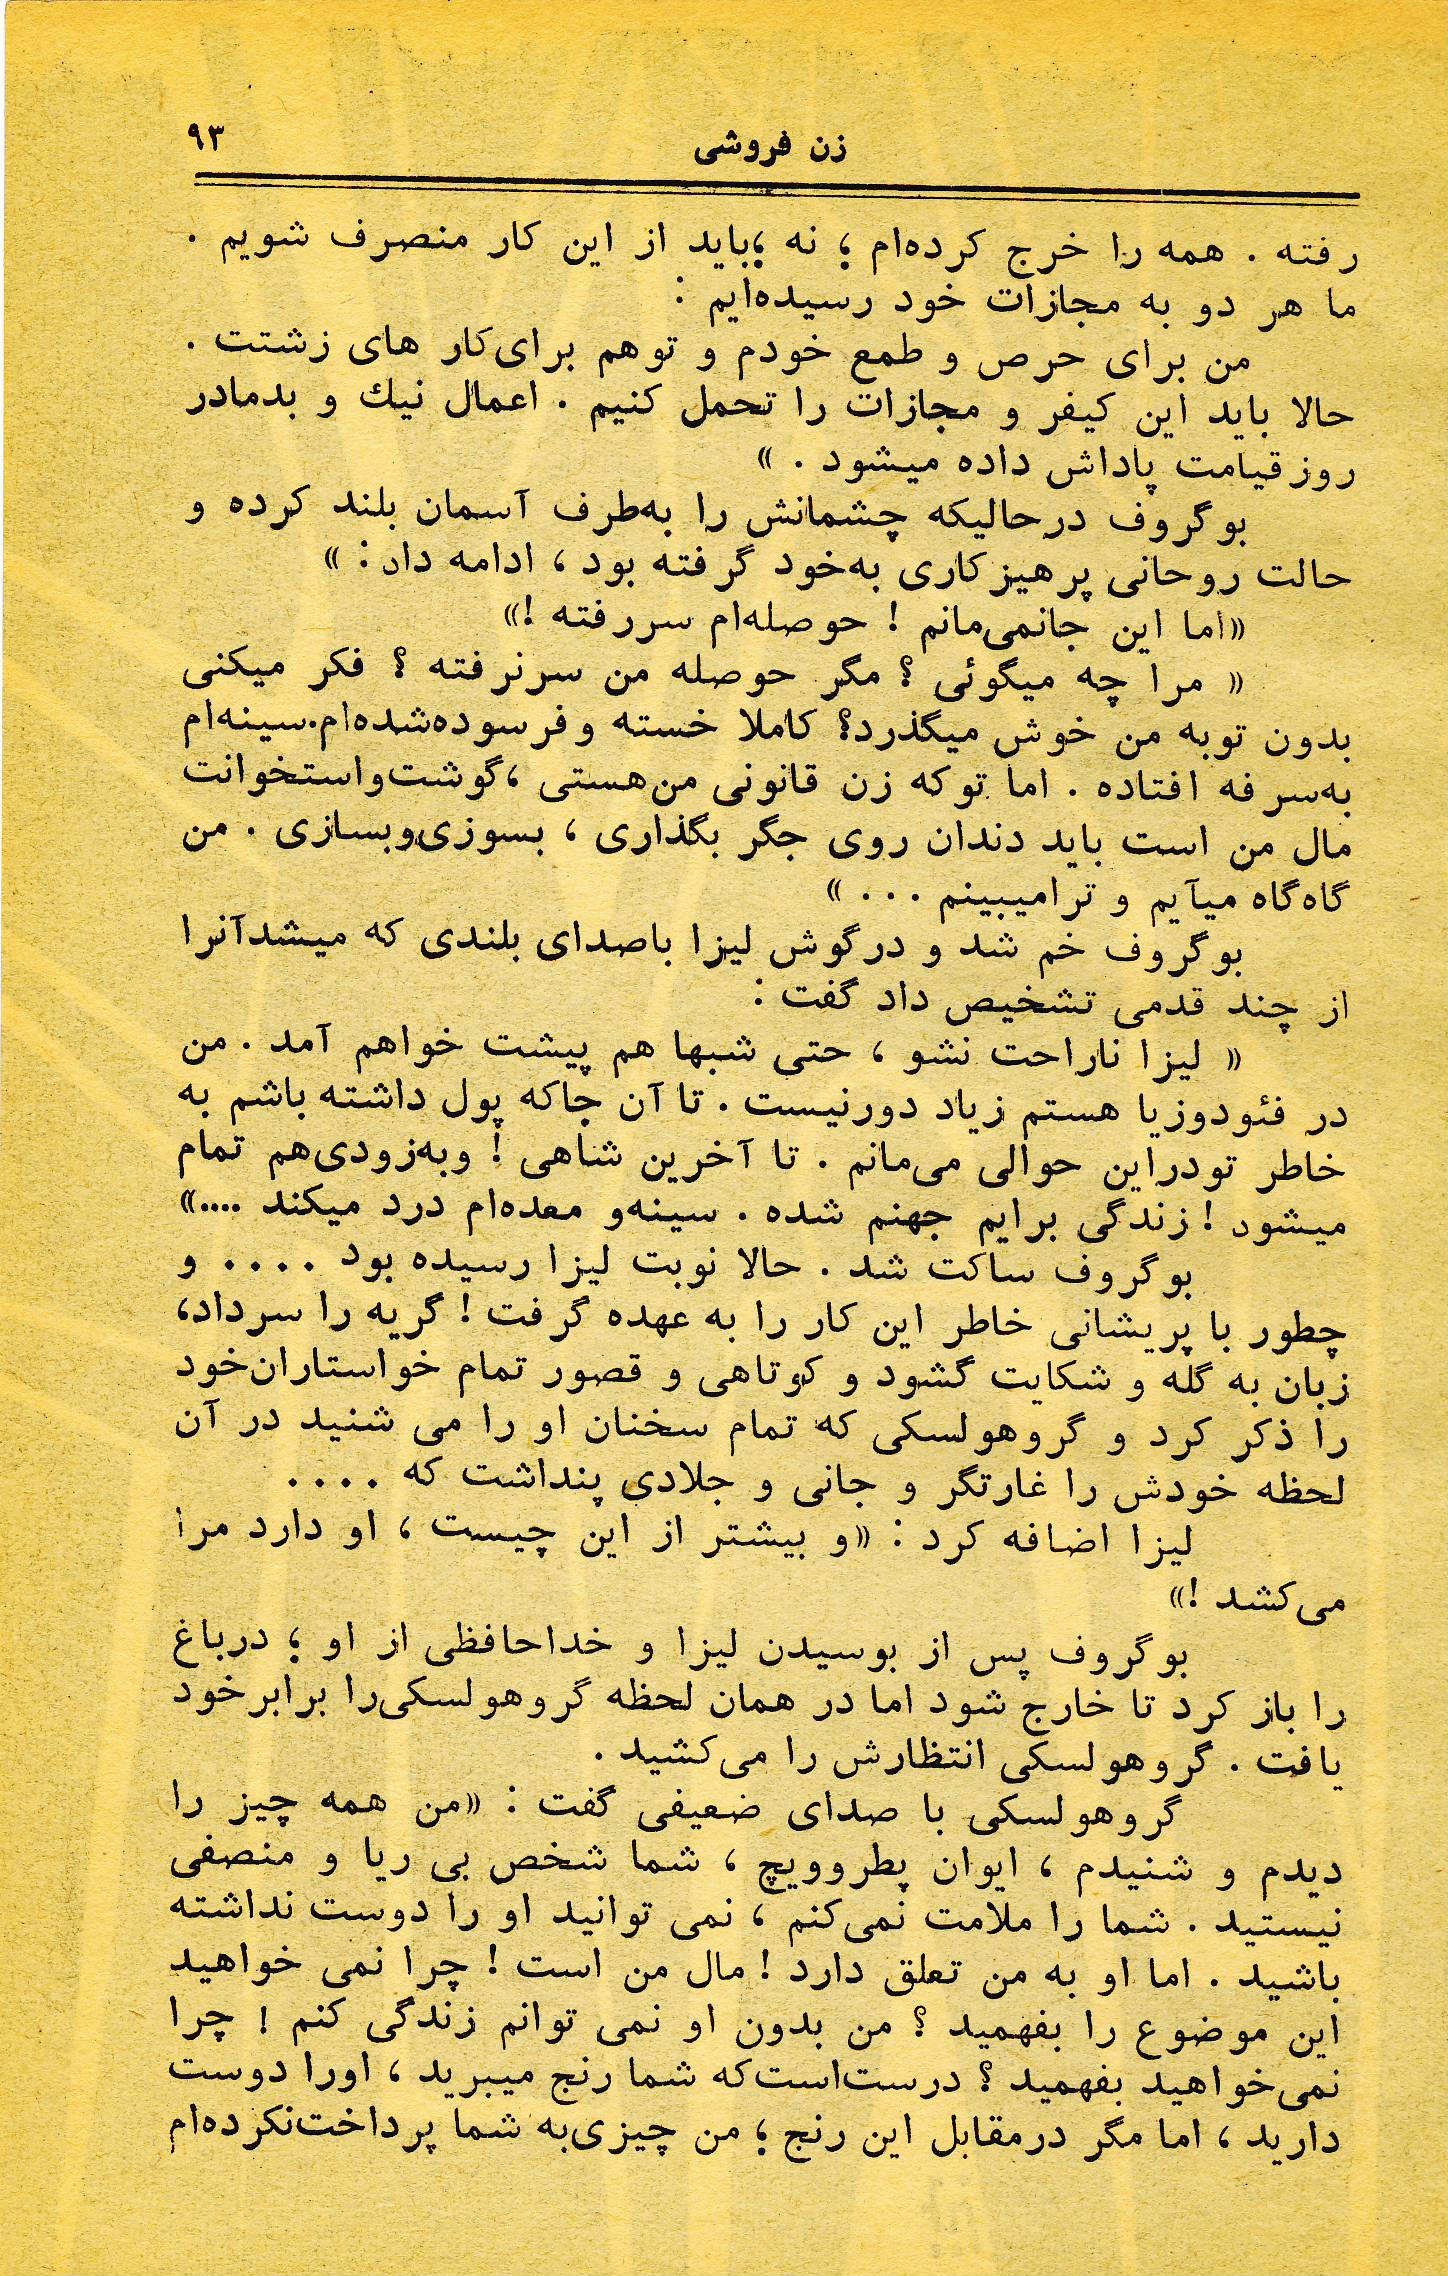 زن فروشی
۹۳
رفته . همه را خرج کرده‌ام ؛ نه ؛باید از این کار منصرف شویم .
ما هر دو به مجازات خود رسیده‌ایم :
من برای حرص و طمع خودم و توهم برای‌کار های زشتت .
حالا باید این کیفر و مجازات را تحمل کنیم . اعمال نیك و بدمادر
روزقیامت پاداش داده میشود . »
بوگروف درحالیکه چشمانش را به‌طرف آسمان بلند کرده و
حالت روحانی پرهیزکاری به‌خود گرفته بود ، ادامه داد : »
«اما این جانمی‌مانم ! حوصله‌ام سررفته !»
« مرا چه میگوئی ؟ مگر حوصله من سرنرفته ؟ فکر میکنی
بدون توبه من خوش میگذرد؟ کاملا خسته وفرسوده‌شده‌ام.سینه‌ام
به‌سرفه افتاده . اما توکه زن قانونی من‌هستی ،گوشت‌واستخوانت
مال من است باید دندان روی جگر بگذاری ، بسوزی‌وبسازی . من
گاه‌گاه میآیم و ترامیبینم . . . »
بوگروف خم شد و درگوش لیزا باصدای بلندی که میشدآنرا
از چند قدمی تشخیص داد گفت :
« لیزا ناراحت نشو ، حتی شبها هم پیشت خواهم آمد . من
در فئودوزیا هستم زیاد دورنیست . تا آن جاکه پول داشته باشم به
خاطر تودراین حوالی می‌مانم . تا آخرین شاهی ! وبه‌زودی‌هم تمام
میشود ! زندگی برایم جهنم شده . سینه‌و معده‌ام درد میکند ....»
بوگروف ساکت شد . حالا نوبت لیزا رسیده بود . . . . و
چطور با پریشانی خاطر این کار را به عهده گرفت ! گریه را سرداد،
زبان به گله و شکایت گشود و کوتاهی و قصور تمام خواستاران‌خود
را ذکر کرد و گروهولسکی که تمام سخنان او را می شنید در آن
لحظه خودش را غارتگر و جانی و جلادی پنداشت که . . . .
لیزا اضافه کرد : «و بیشتر از این چیست ، او دارد مرا
می‌کشد !»
بوگروف پس از بوسیدن لیزا و خداحافظی از او ؛ درباغ
را باز کرد تا خارج شود اما در همان لحظه گروهولسکی‌را برابرخود
یافت . گروهولسکی انتظارش را می‌کشید .
گروهولسکی با صدای ضعیفی گفت : «من همه چیز را
دیدم و شنیدم ، ایوان پطروویچ ، شما شخص بی ریا و منصفی
نیستید . شما را ملامت نمی‌کنم ، نمی توانید او را دوست نداشته
باشید . اما او به من تعلق دارد ! مال من است ! چرا نمی خواهید
این موضوع را بفهمید ؟ من بدون او نمی توانم زندگی کنم ! چرا
نمی‌خواهید بفهمید ؟ درست‌است‌که شما رنج میبرید ، اورا دوست
دارید ، اما مگر درمقابل این رنج ؛ من چیزی‌به شما پرداخت‌نکرده‌ام